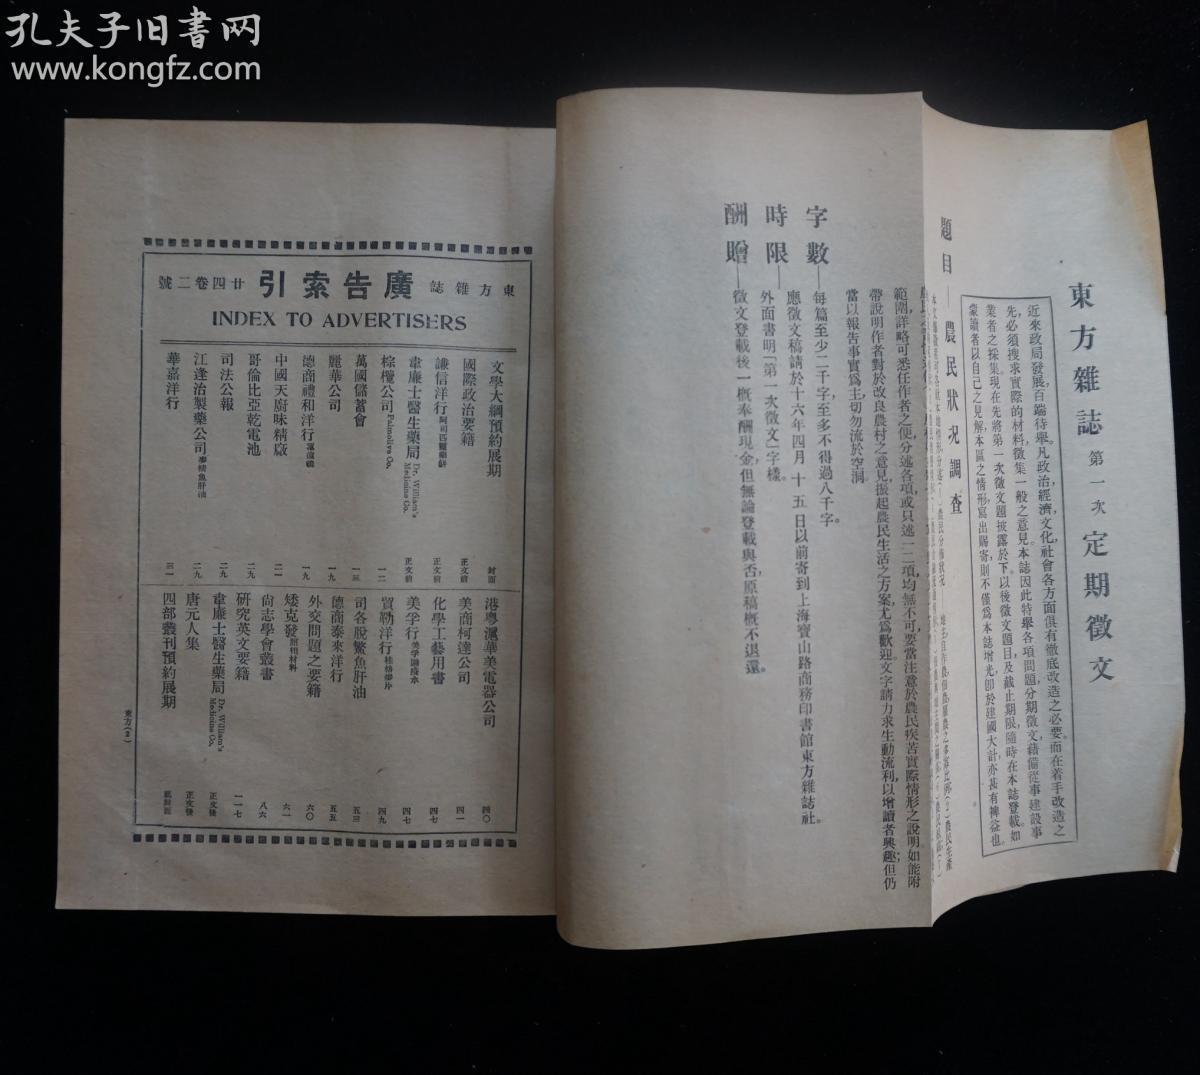 孔夫子旧书网
www.kongfz.com
東方雜誌 第一次 定期徵文
近來政局發展,百端待舉。凡政治,經濟,文化,社會各方面,俱有徹底改造之必要。而在着手改造之
先,必須搜求實際的材料,徵集一般之意見。本誌因此特舉各項問題,分期徵文,藉備從事建設事
業者之採集。現在先將第一次徵文題披露於下。以後徵文題目及截止期限,隨時在本誌登載。如
蒙讀者以自己之見解,本區之情形,寫出賜寄,則不僅爲本誌增光,卽於建國大計,亦甚有裨益也。
題目——農民狀況調查
範圍詳略可悉任作者之便,分述各項,或只述一二項,均無不可,要當注意於農民疾苦實際情形之說明,如能附
帶說明作者對於改良農村之意見,振起農民生活之方案,尤爲歡迎。文字請力求生動流利,以增讀者興趣,但仍
當以報告事實爲主,切勿流於空洞。
字數——每篇至少二千字,至多不得過八千字。
時限——應徵文稿請於十六年四月十五日以前寄到上海寶山路商務印書館東方雜誌社。
外面書明「第一次徵文」字樣。
酬贈——徵文登載後一概奉酬現金,但無論登載與否,原稿概不退還。
東方雜誌 廣告索引 廿四卷二號
INDEX TO ADVERTISERS
文學大綱預約展期 封面
國際政治要籍 正文前
謙信洋行 阿司匹靈藥餅 正文前
韋廉士醫生藥局 Dr. William's Medicine Co. 正文前
棕欖公司 Palmolive Co. 一二
萬國儲蓄會 一三
麗華公司 一九
德商禮和洋行 一九
中國天廚味精廠 二一
哥倫比亞乾電池 二九
司法公報 二九
江逢治製藥公司 麥精魚肝油 二九
華嘉洋行 三一
港粵滬華美電器公司 四〇
美商柯達公司 四一
化學工藝用書 四七
美孚行 四七
貿勒洋行 四九
司各脫鰵魚肝油 五三
德商泰來洋行 五五
外交問題之要籍 六〇
矮克發 照相材料 六一
尙志學會叢書 八六
研究英文要籍 一一七
韋廉士醫生藥局 Dr. William's Medicine Co. 正文後
唐元人集 正文後
四部叢刊預約展期 底封面
東方(2)